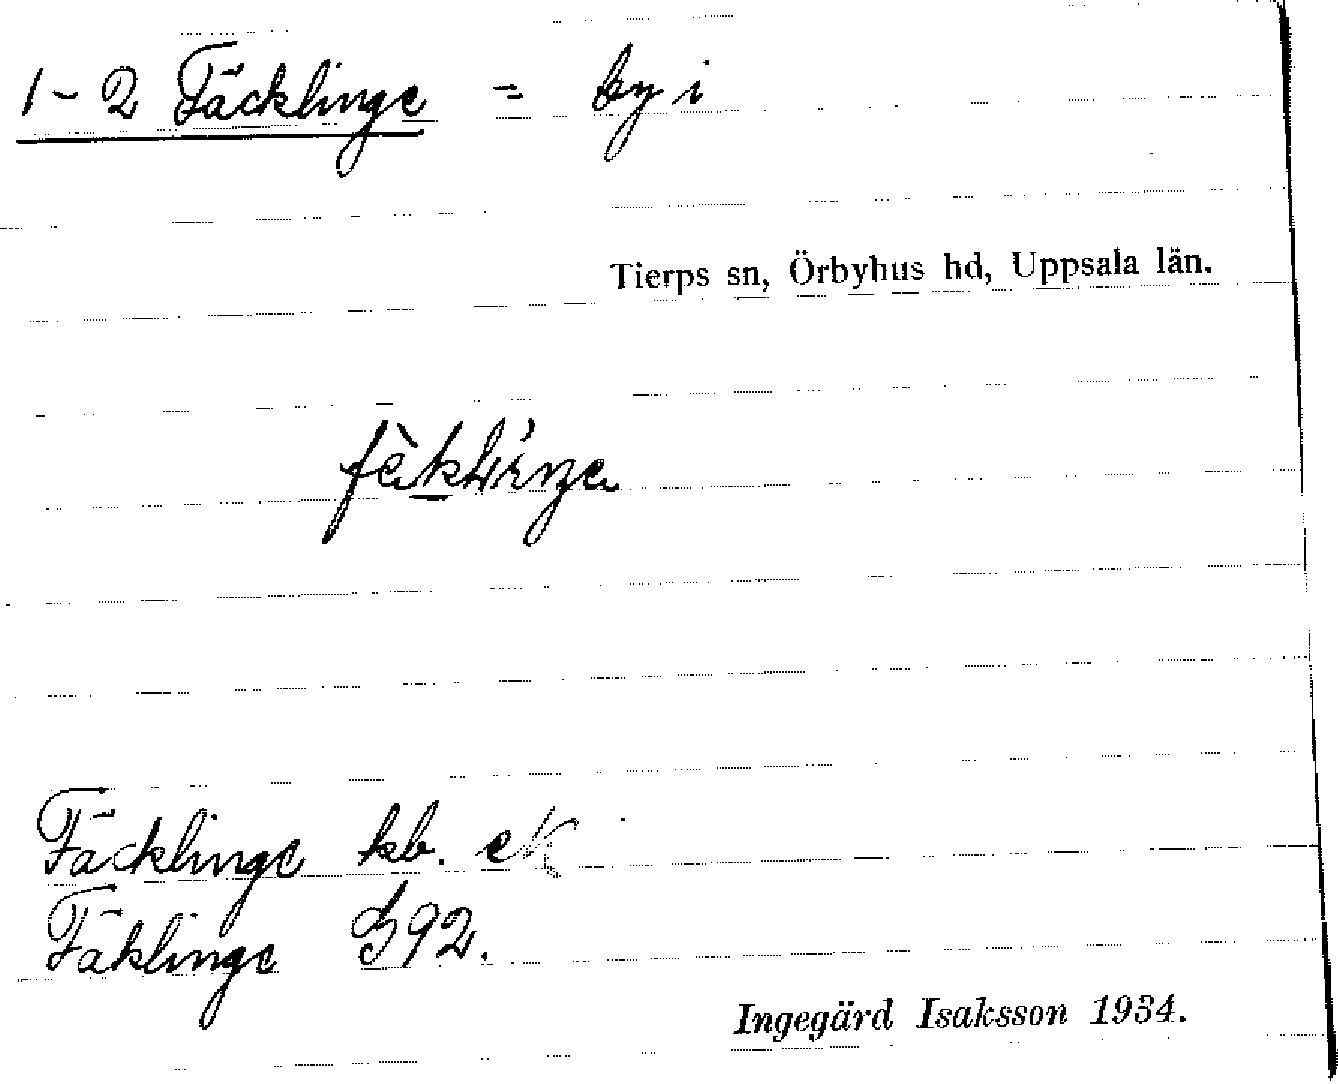 1-2 Fäcklinge = by i
Tierps sn, Örbyhus hd, Uppsala län.
Fäcklinge kb. ek
Fäklinge 392.
Ingegärd Isaksson 1934.